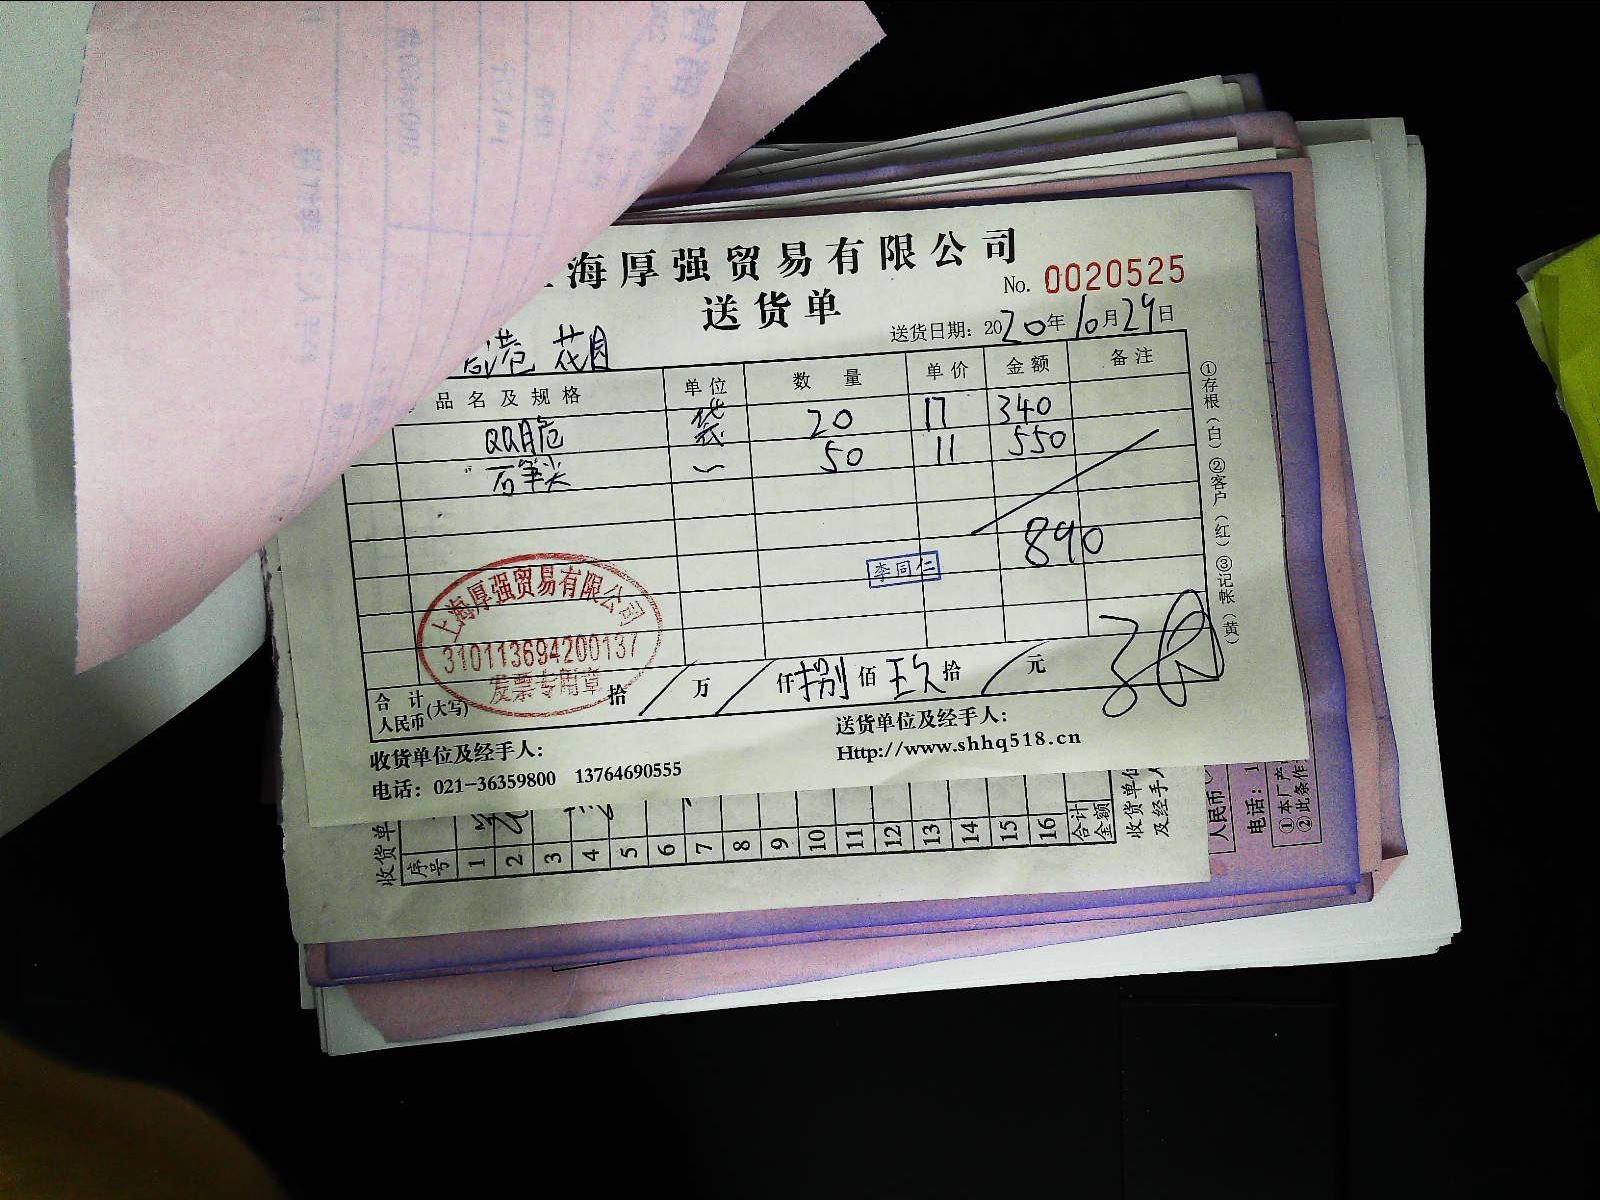 海厚强贸易有限公司
No. 0020525
送货单
送货日期：2020年10月29日
港 花园
品名及规格 单位 数量 单价 金额 备注
QQ脆 袋 20 17 340
石笋尖 〃 50 11 550
890
李同仁
上海厚强贸易有限公司
310113694200137
发票专用章
合计人民币(大写) 拾 / 万 / 仟 捌 佰 玖 拾 / 元
收货单位及经手人：
送货单位及经手人：
电话：021-36359800 13764690555
Http://www.shhq518.cn
①存根（白）②客户（红）③记帐（黄）
收货单
序号 1 2 3 4 5 6 7 8 9 10 11 12 13 14 15 16 合计金额
收货单位及经手人
人民币
电话：1
①本厂产
②此条作